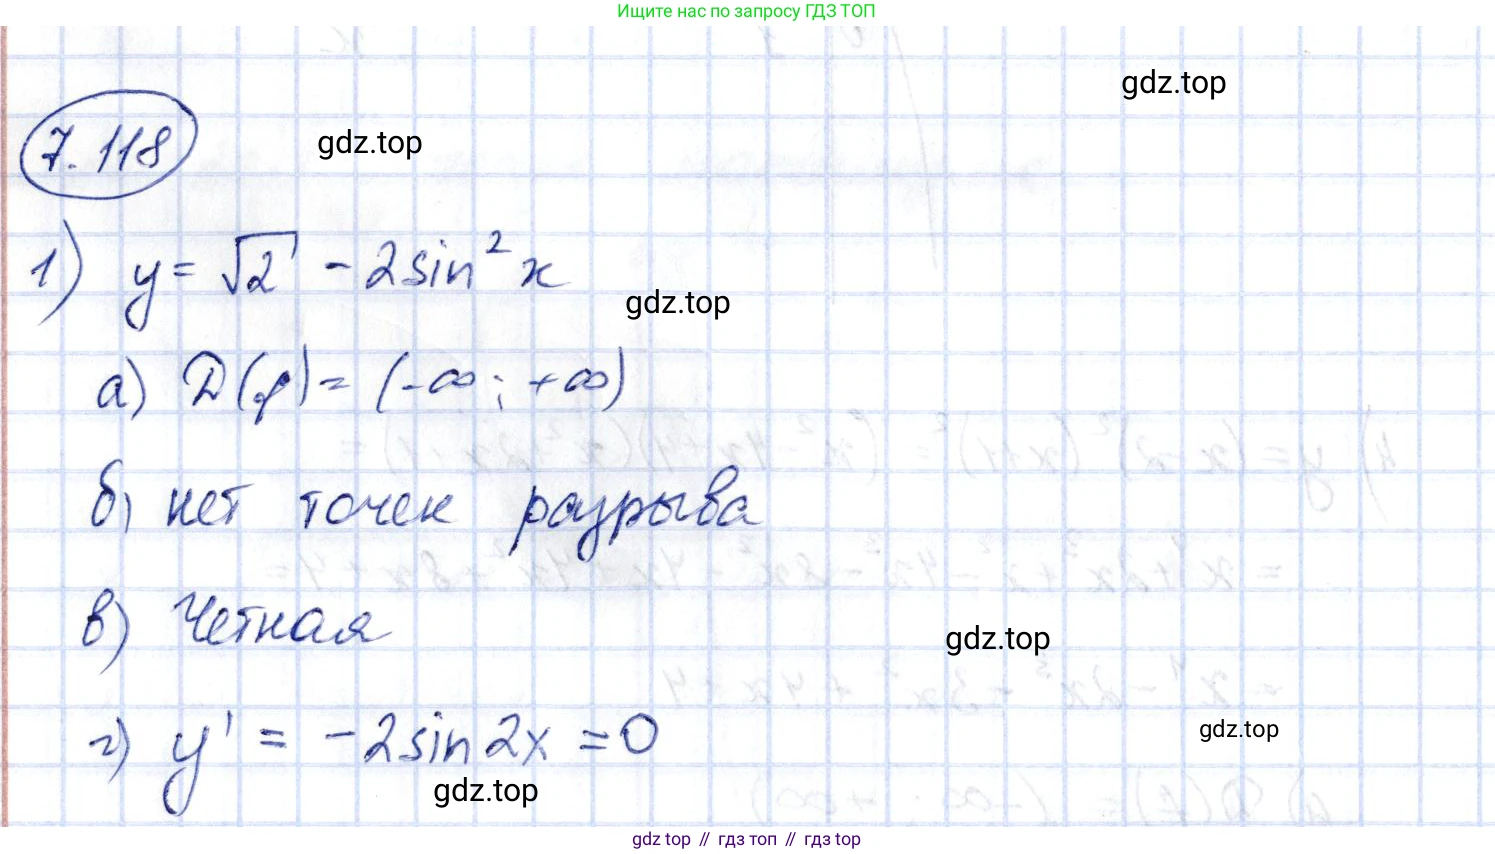 Ищите нас по запросу ГДЗ ТОП
gdz.top
7.118
gdz.top
1) y = √2 - 2sin²x
gdz.top
а) D(f) = (-∞; +∞)
б) нет точек разрыва
в) Четная
gdz.top
г) y' = -2sin2x = 0
gdz.top
gdz.top
gdz.top // гдз топ // гдз top